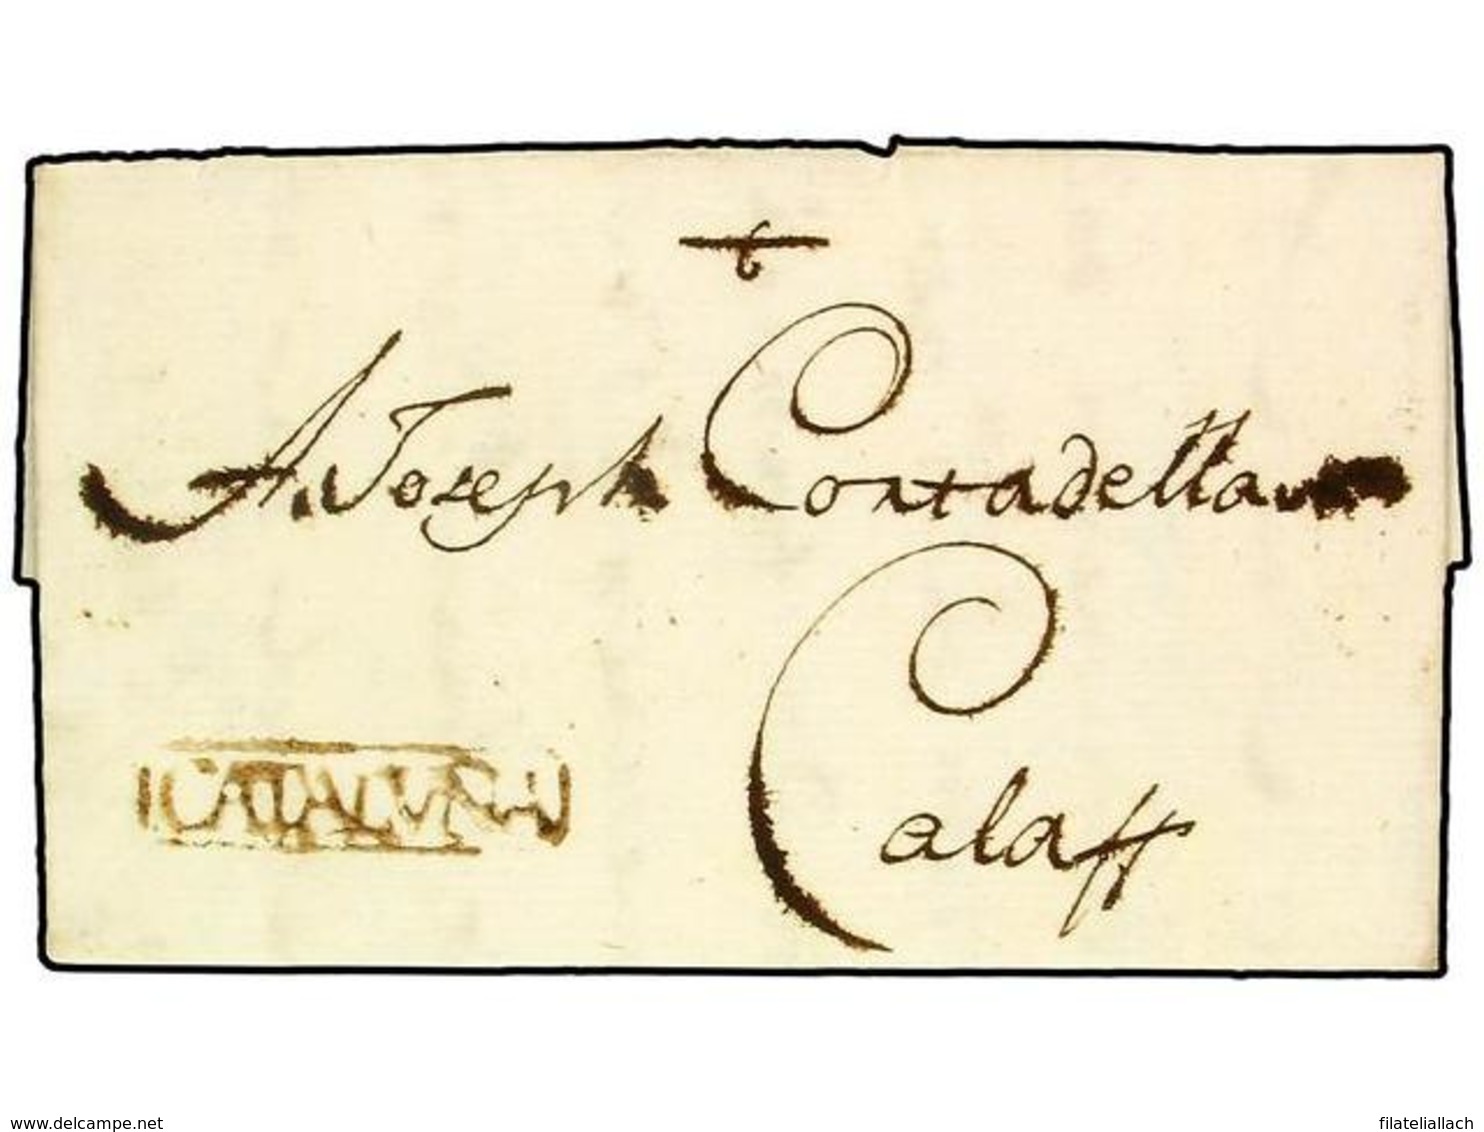 A Joseph Contadella
Calaff
CATALUÑA
delcampe.net
filateliallach